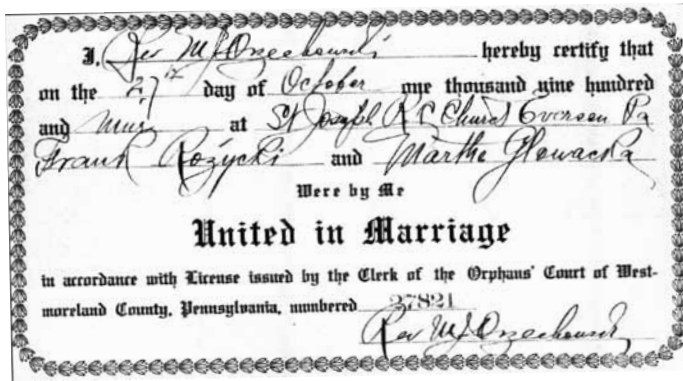 I, Rev M. J. Orzechowski hereby certify that
on the 27th day of October one thousand nine hundred
and at St Joseph R C Church Everson Pa
Frank Różycki and Martha Glowacka
Were by Me
United in Marriage
in accordance with License issued by the Clerk of the Orphans' Court of West-
moreland County, Pennsylvania, numbered 27821
Rev M. J. Orzechowski